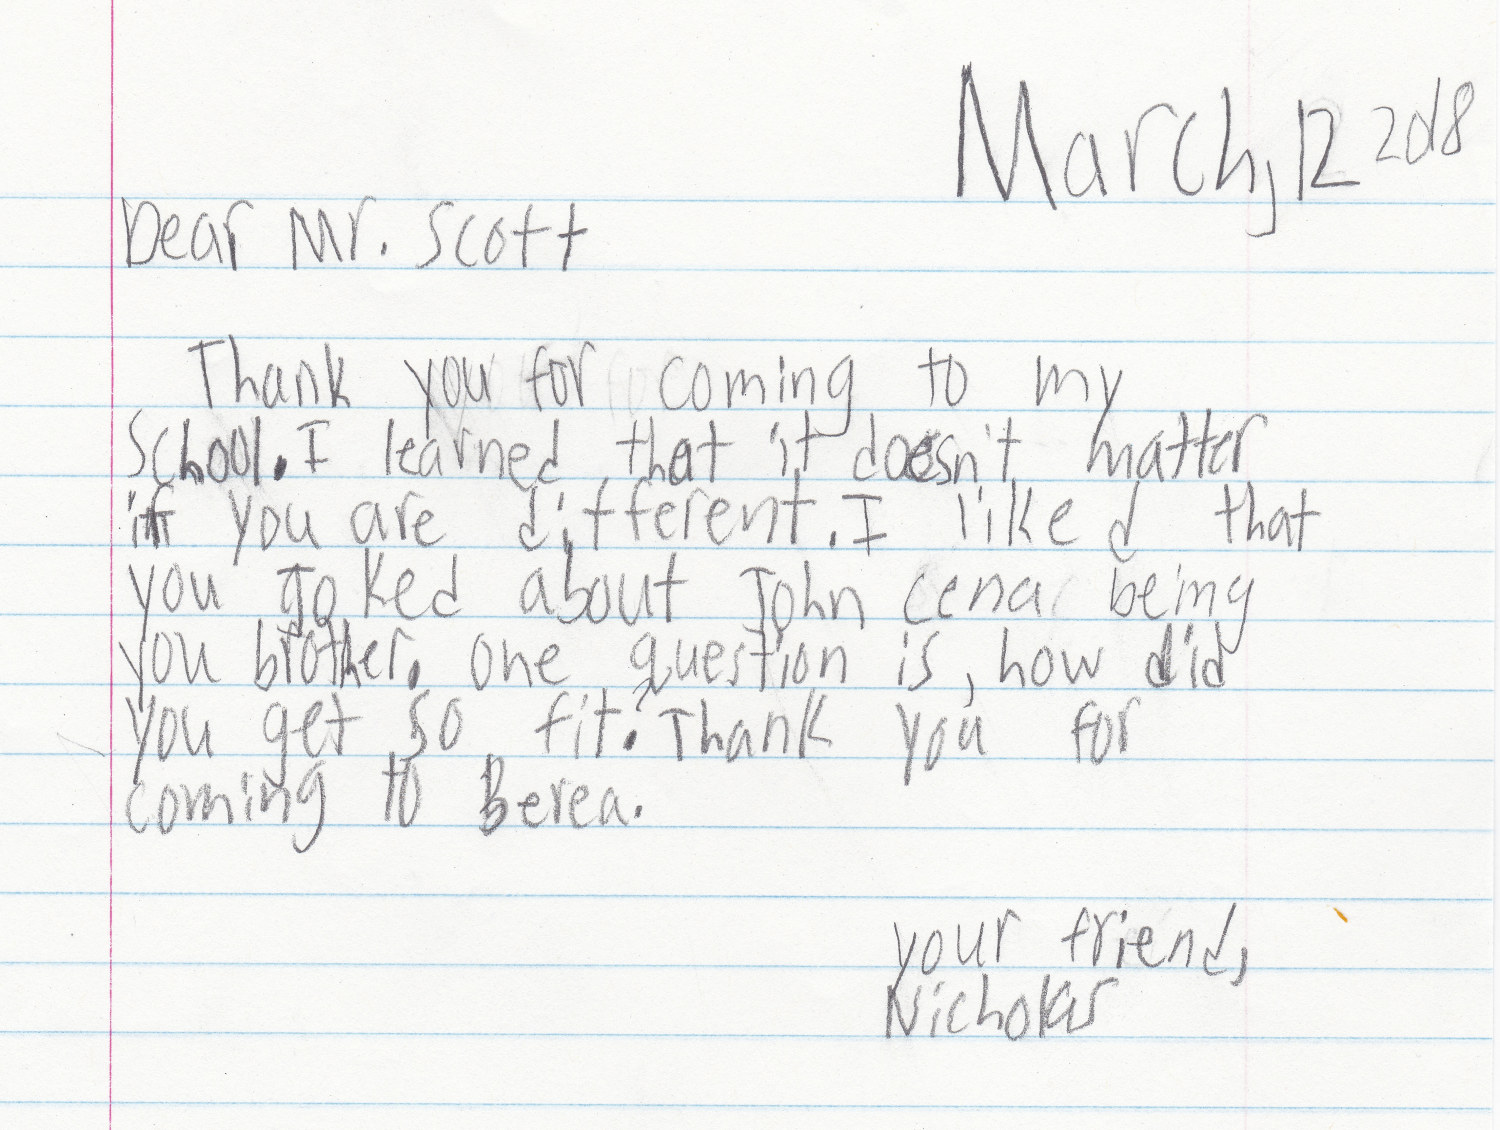 March, 12 2018
Dear Mr. Scott
Thank you for coming to my
School. I learned that it doesn't matter
if you are different. I liked that
you joked about John cena being
you brother. one question is, how did
you get so fit? Thank you for
coming to Berea.
your friend,
Nicholas